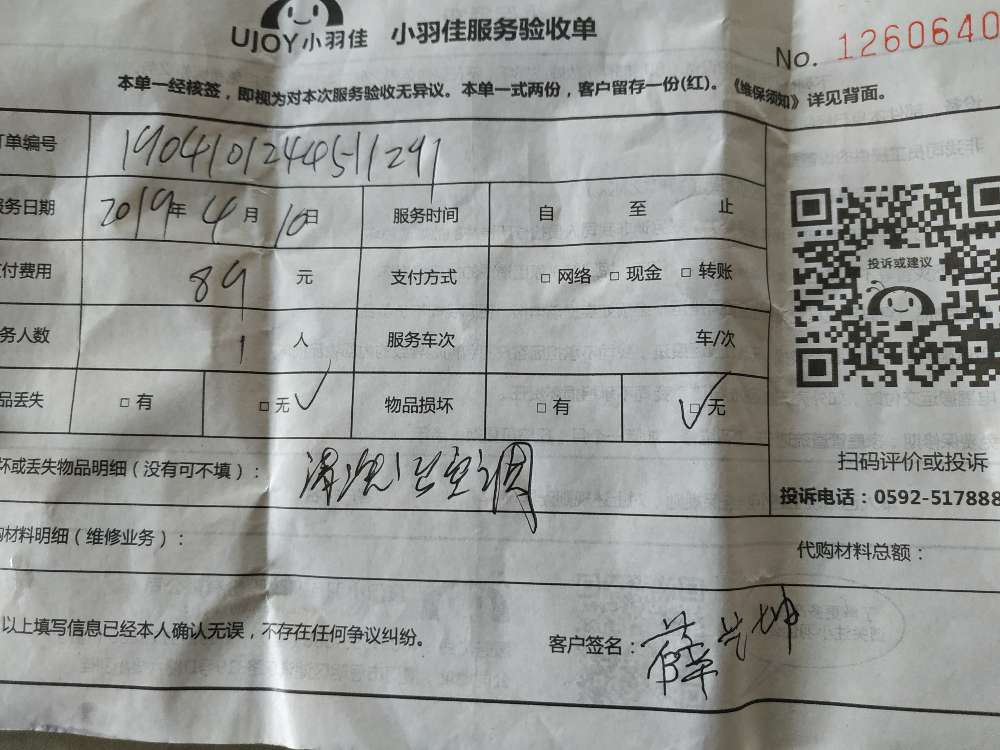 UJOY小羽佳 小羽佳服务验收单
No. 1260640
本单一经核签，即视为对本次服务验收无异议。本单一式两份，客户留存一份(红)。《维保须知》详见背面。
订单编号 19041012444511291
服务日期 2019年 4月 10日 服务时间 自 至 止
支付费用 89 元 支付方式 □ 网络 □ 现金 □ 转账
务人数 1 人 服务车次 车/次
品丢失 □ 有 □ 无 ✓ 物品损坏 □ 有 □ 无 ✓
投诉或建议
坏或丢失物品明细（没有可不填）： 清洗 空调
扫码评价或投诉
投诉电话：0592-517888
购材料明细（维修业务）： 代购材料总额：
以上填写信息已经本人确认无误，不存在任何争议纠纷。 客户签名：薛 坤